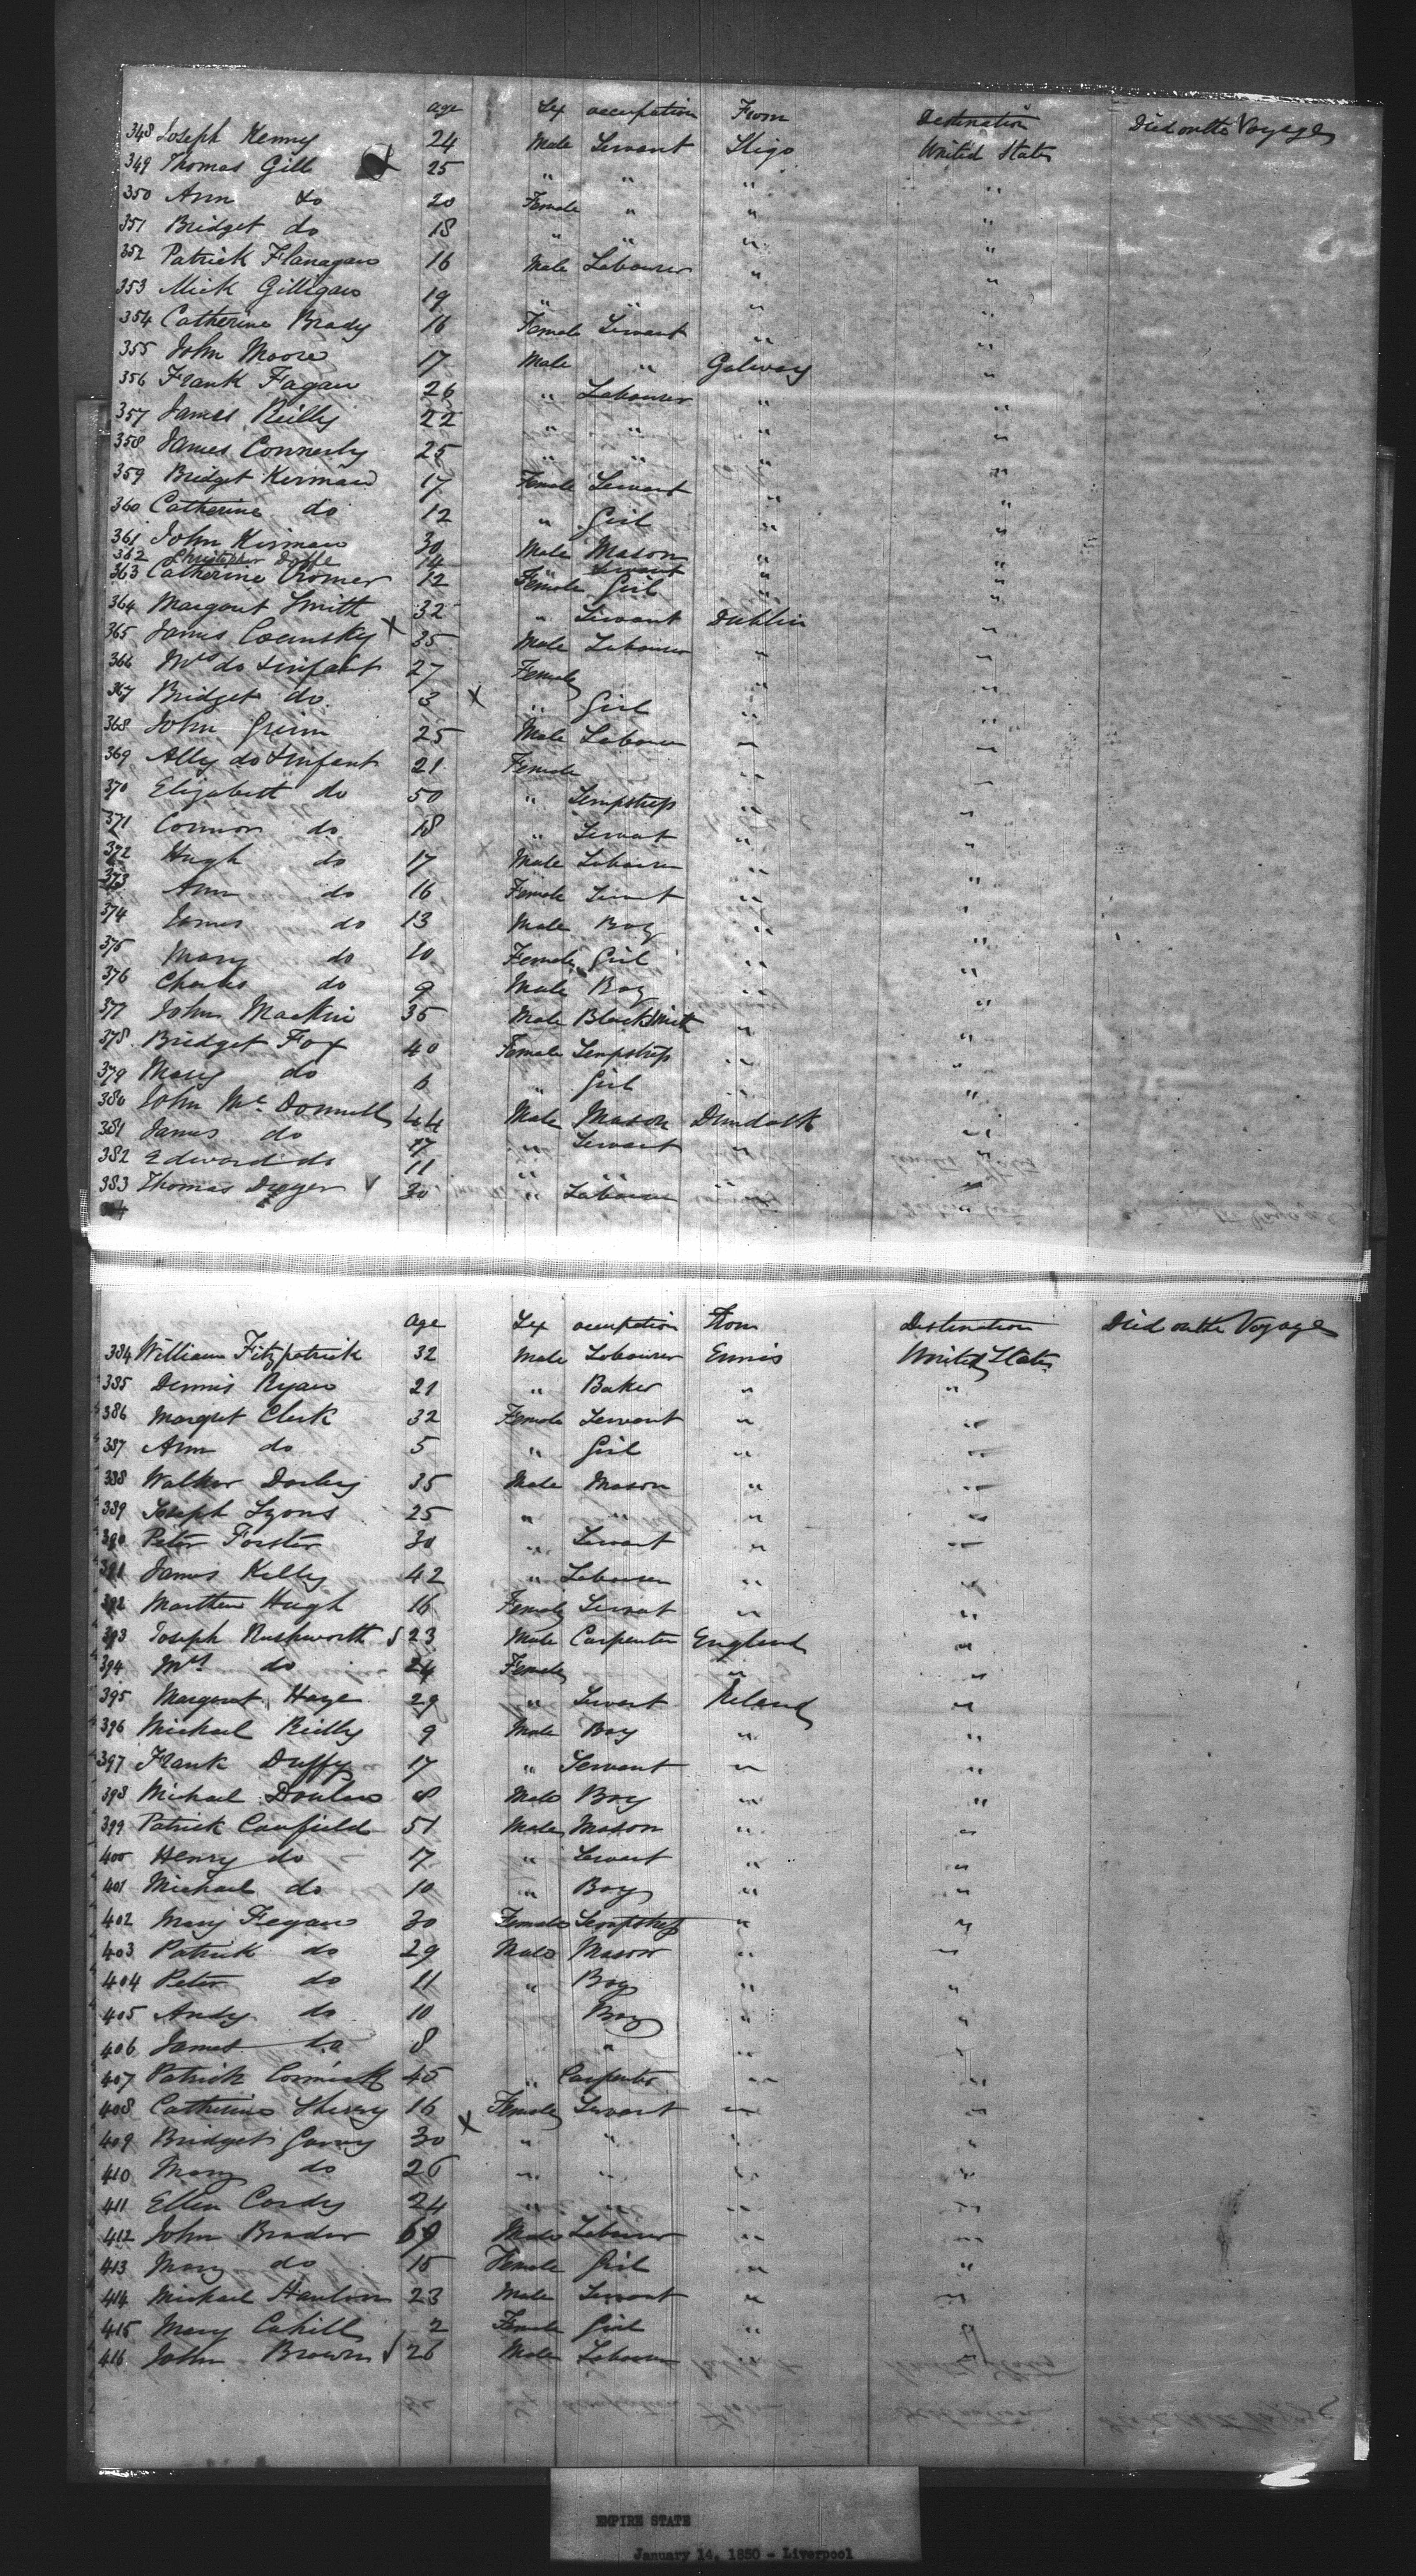 age Sex occupation From Destination Died on the Voyage
348 Joseph Kenny 24 Male Servant Sligo United States
349 Thomas Gill 25 " " " "
350 Ann do 20 Female " " "
351 Bridget do 18 " " " "
352 Patrick Flanagan 16 Male Labourer " "
353 Mick Gilligan 19 " " " "
354 Catherine Brady 16 Female Servant " "
355 John Moore 17 Male " Galway "
356 Frank Fagan 26 " Labourer " "
357 James Reilly 22 " " " "
358 James Connerly 25 " " " "
359 Bridget Kirman 17 Female Servant " "
360 Catherine do 12 " Girl " "
361 John Kirman 30 Male Mason " "
362 Christopher Doffe 14 " Servant " "
363 Catherine Cromer 12 Female Girl " "
364 Margaret Smith 32 " Servant Dublin "
365 James 35 Male Labourer " "
366 Mrs do & infant 27 Female " "
367 Bridget do 3 " Girl " "
368 John 25 Male Labourer " "
369 Ally do & infant 21 Female " "
370 Elizabeth do 50 " Sempstress " "
371 Connor do 18 " Servant " "
372 Hugh do 17 Male Labourer " "
373 Ann do 16 Female Servant " "
374 James do 13 Male Boy " "
375 Mary do 10 Female Girl " "
376 Charles do 9 Male Boy " "
377 John Mackin 35 Male Blacksmith " "
378 Bridget Fox 40 Female Sempstress " "
379 Mary do 6 " Girl " "
380 John McDonnell 44 Male Mason Dundalk "
381 James do 17 " Servant " "
382 Edward do 11 " " "
383 Thomas 30 " Labourer " "
age Sex occupation From Destination Died on the Voyage
384 William Fitzpatrick 32 Male Labourer Ennis United States
385 Dennis Ryan 21 " Baker " "
386 Margret Clerk 32 Female Servant " "
387 Ann do 5 " Girl " "
388 Walker Darley 35 Male Mason " "
389 Joseph Lyons 25 " " " "
390 Peter Forster 30 " Servant " "
391 James Kelley 42 " Labourer " "
392 Marthew Hugh 16 Female Servant " "
393 Joseph Rushworth 23 Male Carpenter England "
394 Mrs do 24 Female " "
395 Margaret Haye 29 " Servant Ireland "
396 Michael Reilly 9 Male Boy " "
397 Frank Duffy 17 " Servant " "
398 Michael 8 Male Boy " "
399 Patrick Caufield 51 Male Mason " "
400 Henry do 17 " Servant " "
401 Michael do 10 " Boy " "
402 Mary Fegan 30 Female Sempstress " "
403 Patrick do 29 Male Mason " "
404 Peter do 11 " Boy " "
405 Andy do 10 Boy " "
406 James do 8 " " "
407 Patrick Cormick 45 " Carpenter " "
408 Catherine Sherry 16 Female Servant " "
409 Bridget Garvy 30 " " " "
410 Mary do 26 " " " "
411 Ellen Cordy 24 " " " "
412 John Brader 69 Male Labourer " "
413 Mary do 15 Female Girl " "
414 Michael Hanlon 23 Male Servant " "
415 Mary Cahill 2 Female Girl " "
416 John Brown 26 Male Labourer "
EMPIRE STATE
January 14, 1850 - Liverpool